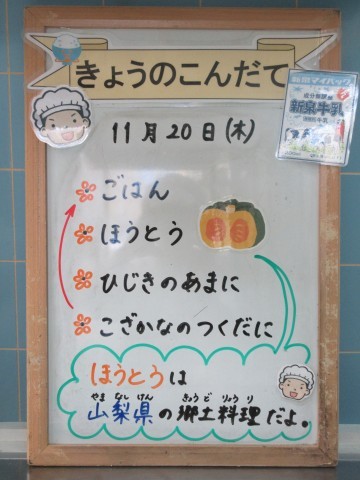 きょうのこんだて
11月20日(木)
新泉牛乳
ごはん
ほうとう
ひじきのあまに
こざかなのつくだに
ほうとうは
やま なし けん きょう ど りょう り
山梨県の郷土料理だよ。